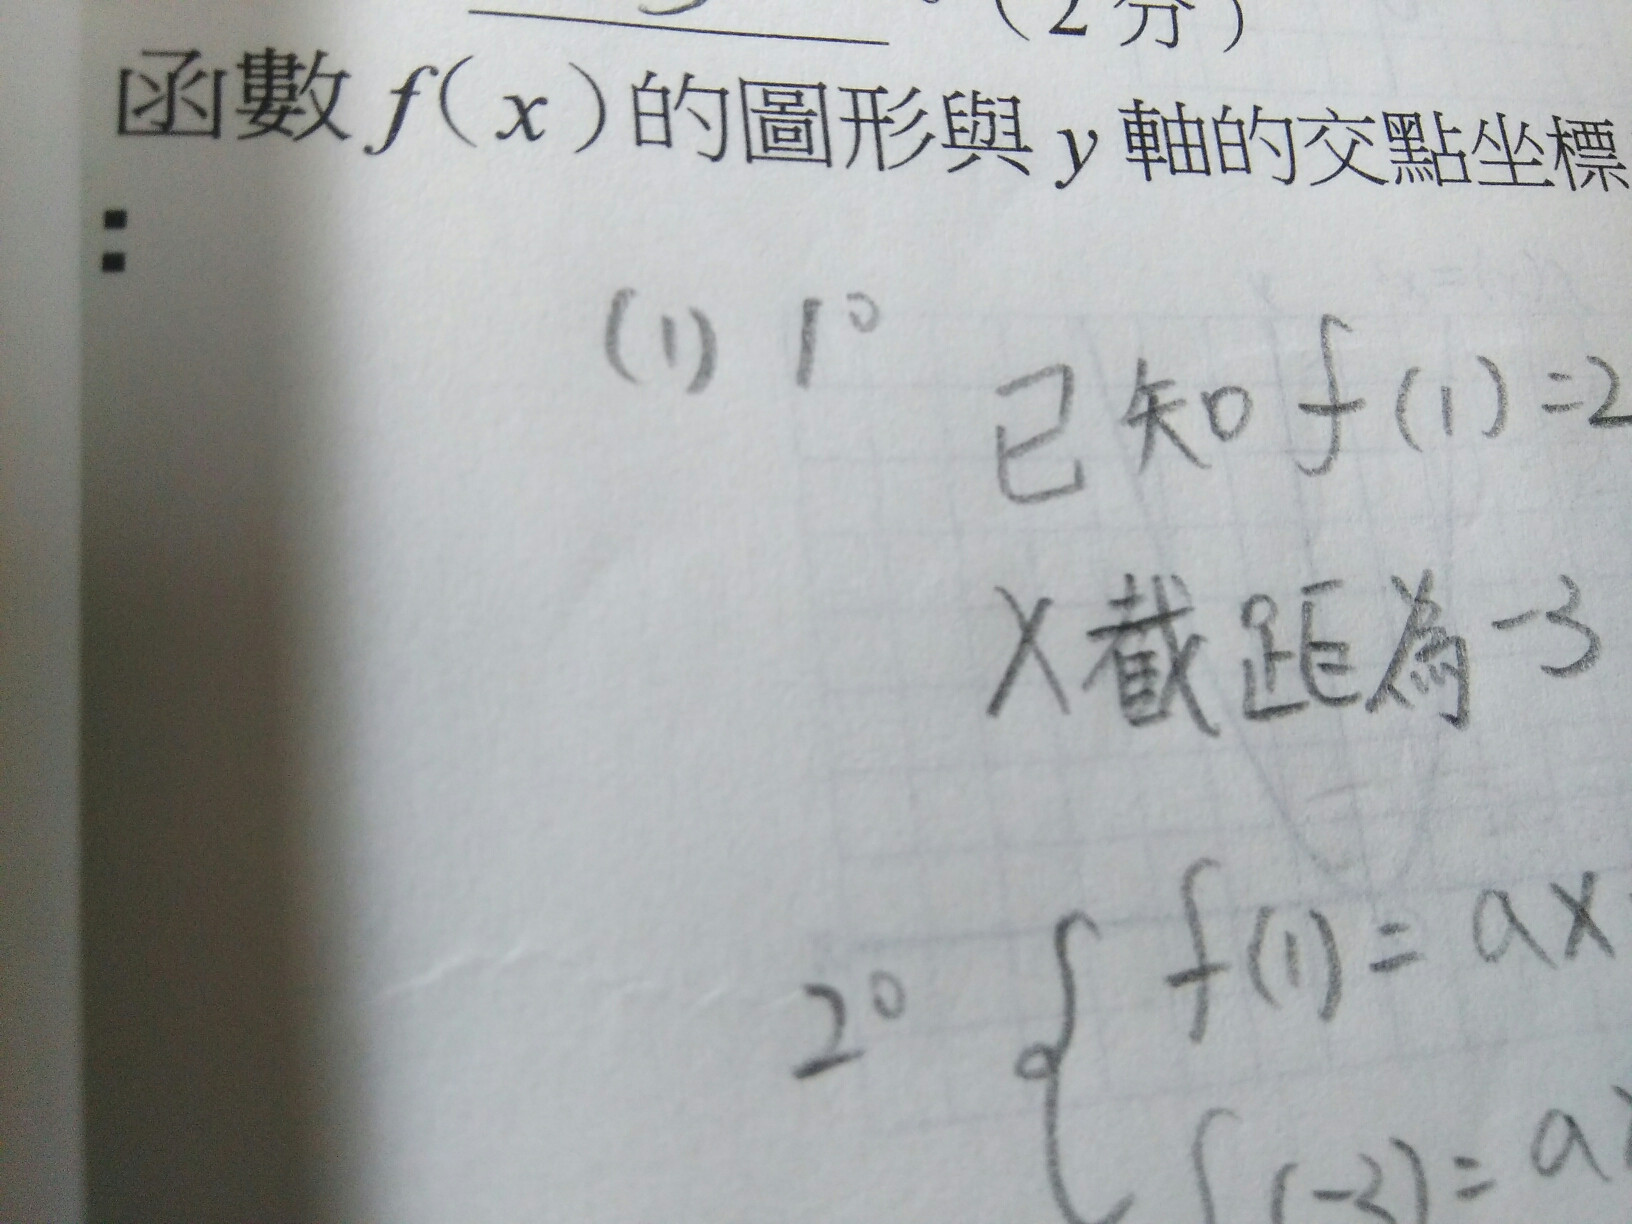 (2分)
函數 f(x)的圖形與 y 軸的交點坐標
:
(1) 1°
已知 f(1)=2
X截距為-3
2° { f(1)= ax
f(-3)= a